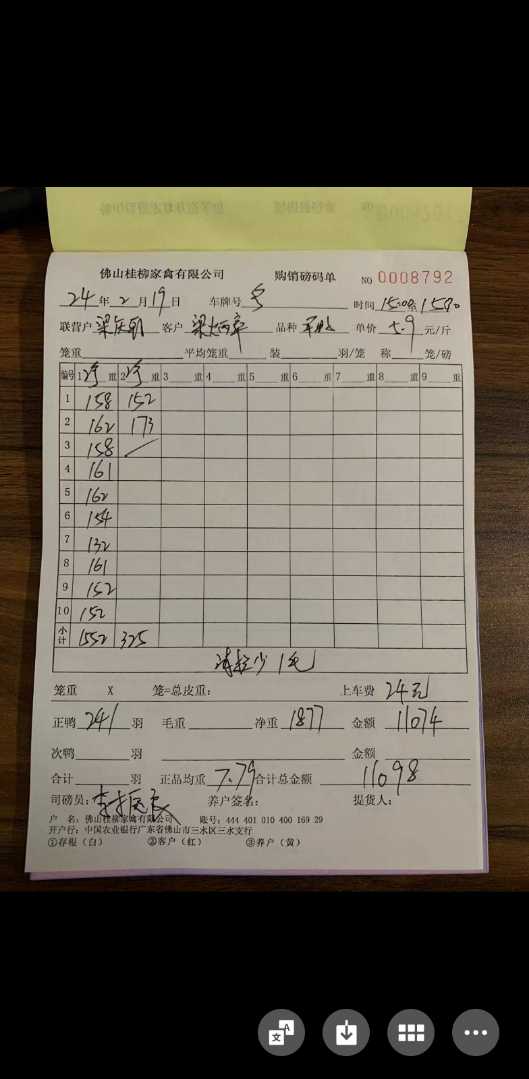 佛山桂柳家禽有限公司 购销磅码单 NO 0008792
24年2月19日 车牌号 时间 15:00
联营户 客户 品种 单价 5.9 元/斤
笼重 平均笼重 装 羽/笼 称 笼/磅
编号 1 净 重 2 净 重 3 重 4 重 5 重 6 重 7 重 8 重 9 重
1 158 152
2 162 173
3 158
4 161
5 162
6 154
7 132
8 161
9 152
10 152
小计 1552 325
少1毛
笼重 X 笼=总皮重: 上车费 24元
正鸭 241 羽 毛重 净重 1877 金额 11074
次鸭 羽 金额
合计 羽 正品均重 7.79 合计总金额 11098
司磅员: 养户签名: 提货人:
户 名: 佛山桂柳家禽有限公司 账号: 444 401 010 400 169 29
开户行: 中国农业银行广东省佛山市三水区三水支行
①存根(白) ②客户(红) ③养户(黄)